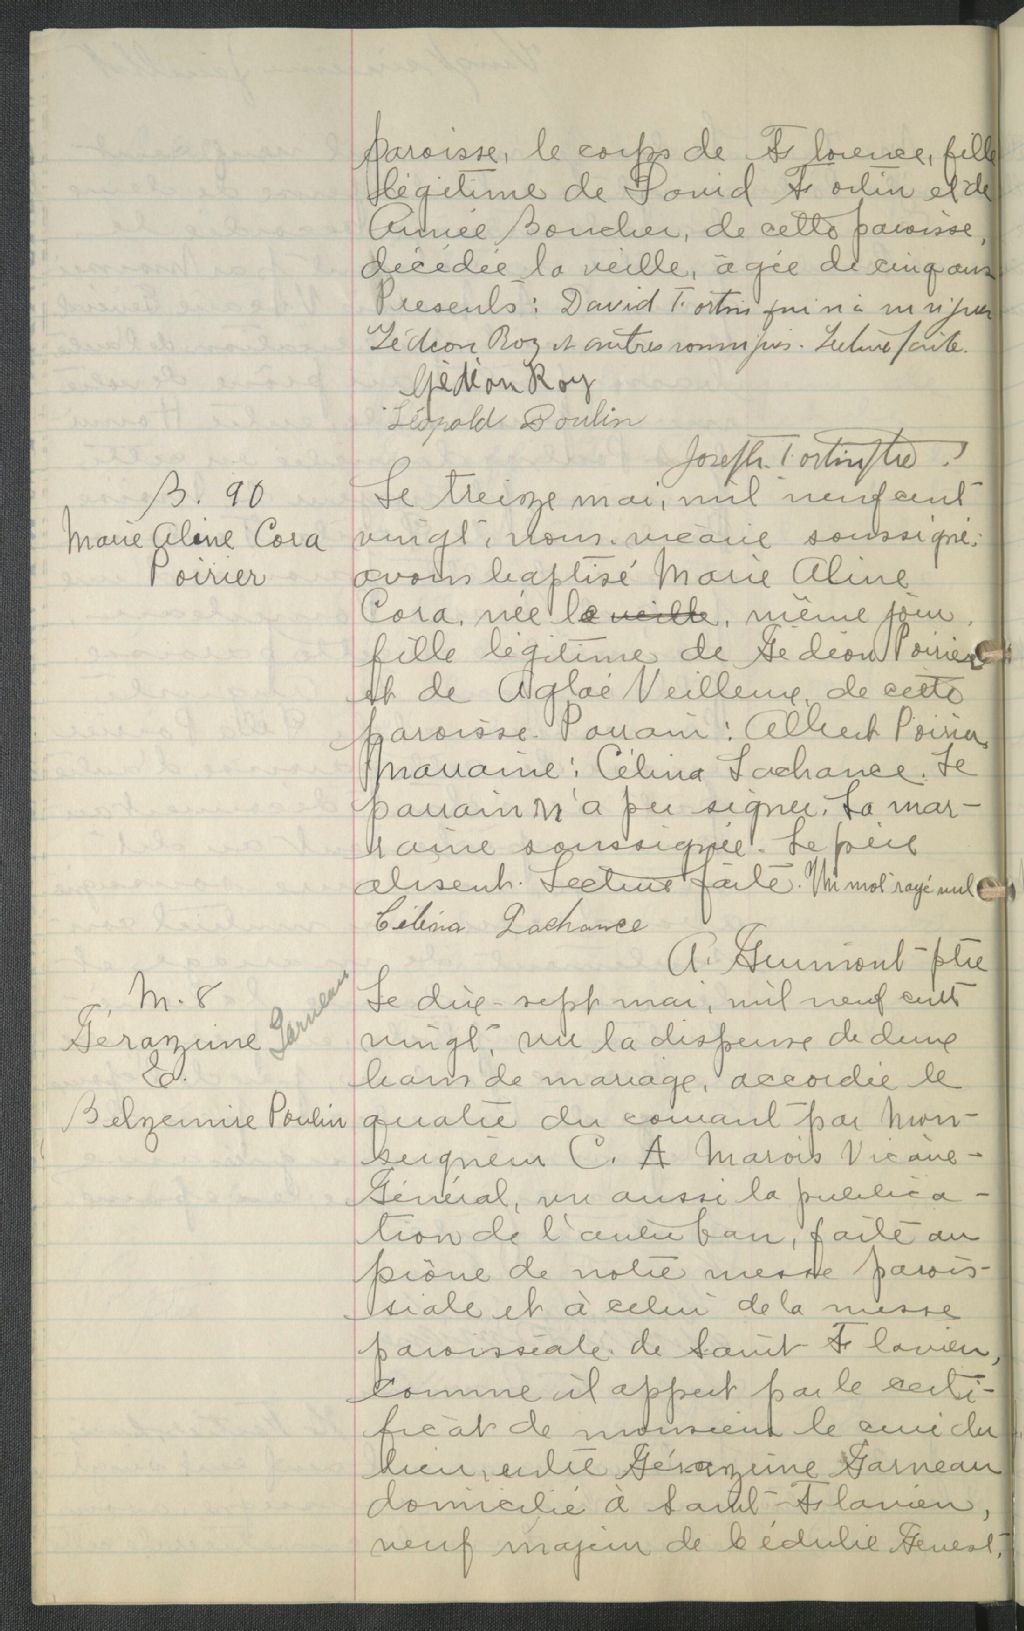 paroisse, le corps de Florence, fille
légitime de David Fortin et de
Année Boucher, de cette paroisse,
décédée la veille, âgée de cinq ans
Presents: David Fortin qui n'a su signer
Gédéon Roy et autres non requis. Lecture faite.
Gédéon Roy
Léopold Poulin
Joseph Fortin ptre
B. 90
Marie Aline Cora
Poirier
Le treize mai, mil neuf cent
vingt, nous vicaire soussigné,
avons baptisé Marie Aline
Cora, née le veille, même jour,
fille légitime de Gédéon Poirier
et de Aglaé Veilleux, de cette
paroisse. Parrain: Albert Poirier,
Marraine: Célina Lachance. Le
parrain n'a pu signer. La mar-
raine soussignée. Le père
absent. Lecture faite. Un mot rayé nul
Célina Lachance
A. Gumont ptre
M. 8
Gérazime Garneau
Et.
Belzemire Poulin
Le dix-sept mai, mil neuf cent
vingt, vu la dispense de deux
bans de mariage, accordée le
quatre du courant par Mon-
seigneur C. A Marois Vicaire-
Général, vu aussi la publica-
tion de l'autre ban, faite au
prône de notre messe parois-
siale et à celui de la messe
paroissiale de Saint Flavien,
comme il appert par le certi-
ficat de monsieur le curé du
lieu, entre Gérazime Garneau
domicilié à Saint-Flavien,
veuf majeur de Cédulie Genest,